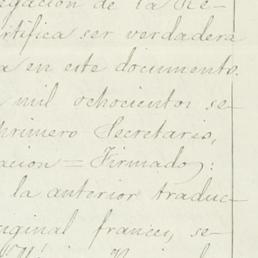 egacion de la Re-
rtifica ser verdadera
a en este documento.
mil ochocientos se-
primero Secretario,
acion = Firmado:
la anterior traduc-
iginal frances, se-